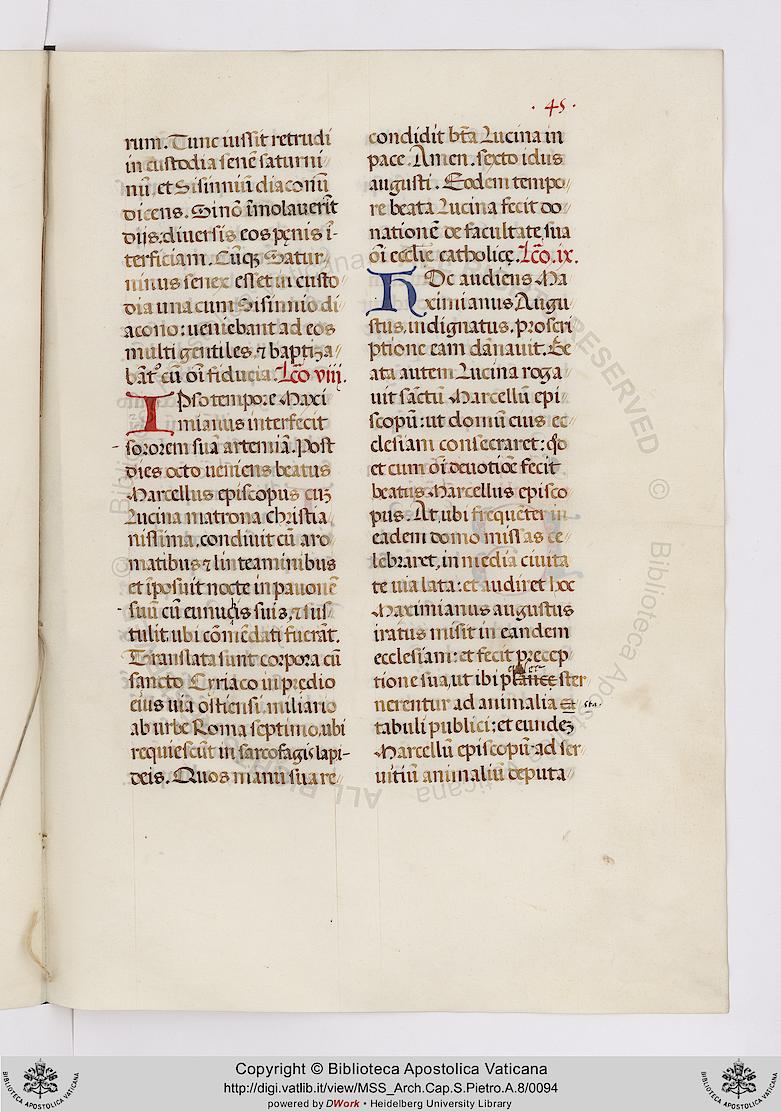 · 45 ·
rum. Tunc iussit retrudi
in custodia senē saturni
nū et Sisinniū diaconū
dicens. Si nō īmolauerīt
diis: diuersis eos pęnis ī
terficiam. Cūq; Satur
ninus senex esset in custo
dia una cum Sisinnio di
acono: ueniebant ad eos
multi gentiles, ⁊ baptiza
bāt᷒ cū oī fiducia. Lc̄o viii.
IPso tempore Maxi
mianus interfecit
sororem suā artemiā. Post
dies octo ueniens beatus
Marcellus episcopus cuȝ
Lucina matrona christia
nissima, condiuit cū aro
matibus ⁊ linteaminibus
et īposuit nocte in pauonē
suū cū eunuchis suis, ⁊ sus
tulit ubi cōmēdati fuerāt.
Translata sunt corpora cū
sancto Cyriaco in predio
eius uia ostiensi miliario
ab urbe Roma septimo, ubi
requiescūt in sarcofagis lapi
deis. Quos manu sua re
condidit bt̄a Lucina in
pace. Amen. sexto idus
augusti. Eodem tempo
re beata Lucina fecit do
nationē de facultate sua
oī eccłie catholicę. Lc̄o. ix.
HOc audiens Ma
ximianus Augu
stus, indignatus, proscri
ptione eam dānauit. Be
ata autem Lucina roga
uit sāctū Marcellū epi
scopū: ut domū eius ec
clesiam consecraret: qđ
et cum oī deuotiōe fecit
beatus Marcellus episco
pus. At ubi frequēter in
eadem domo missas ce
lebraret, in media ciuita
te uia lata: et audiret hoc
Maximianus augustus
iratus misit in eandem
ecclesiam: et fecit precep
tione sua, ut ibi plance ster
nerentur ad animalia et sta·
tabuli publici: et eundeȝ
Marcellū episcopū ad ser
uitiū animaliū deputa
Copyright © Biblioteca Apostolica Vaticana
http://digi.vatlib.it/view/MSS_Arch.Cap.S.Pietro.A.8/0094
powered by DWork • Heidelberg University Library